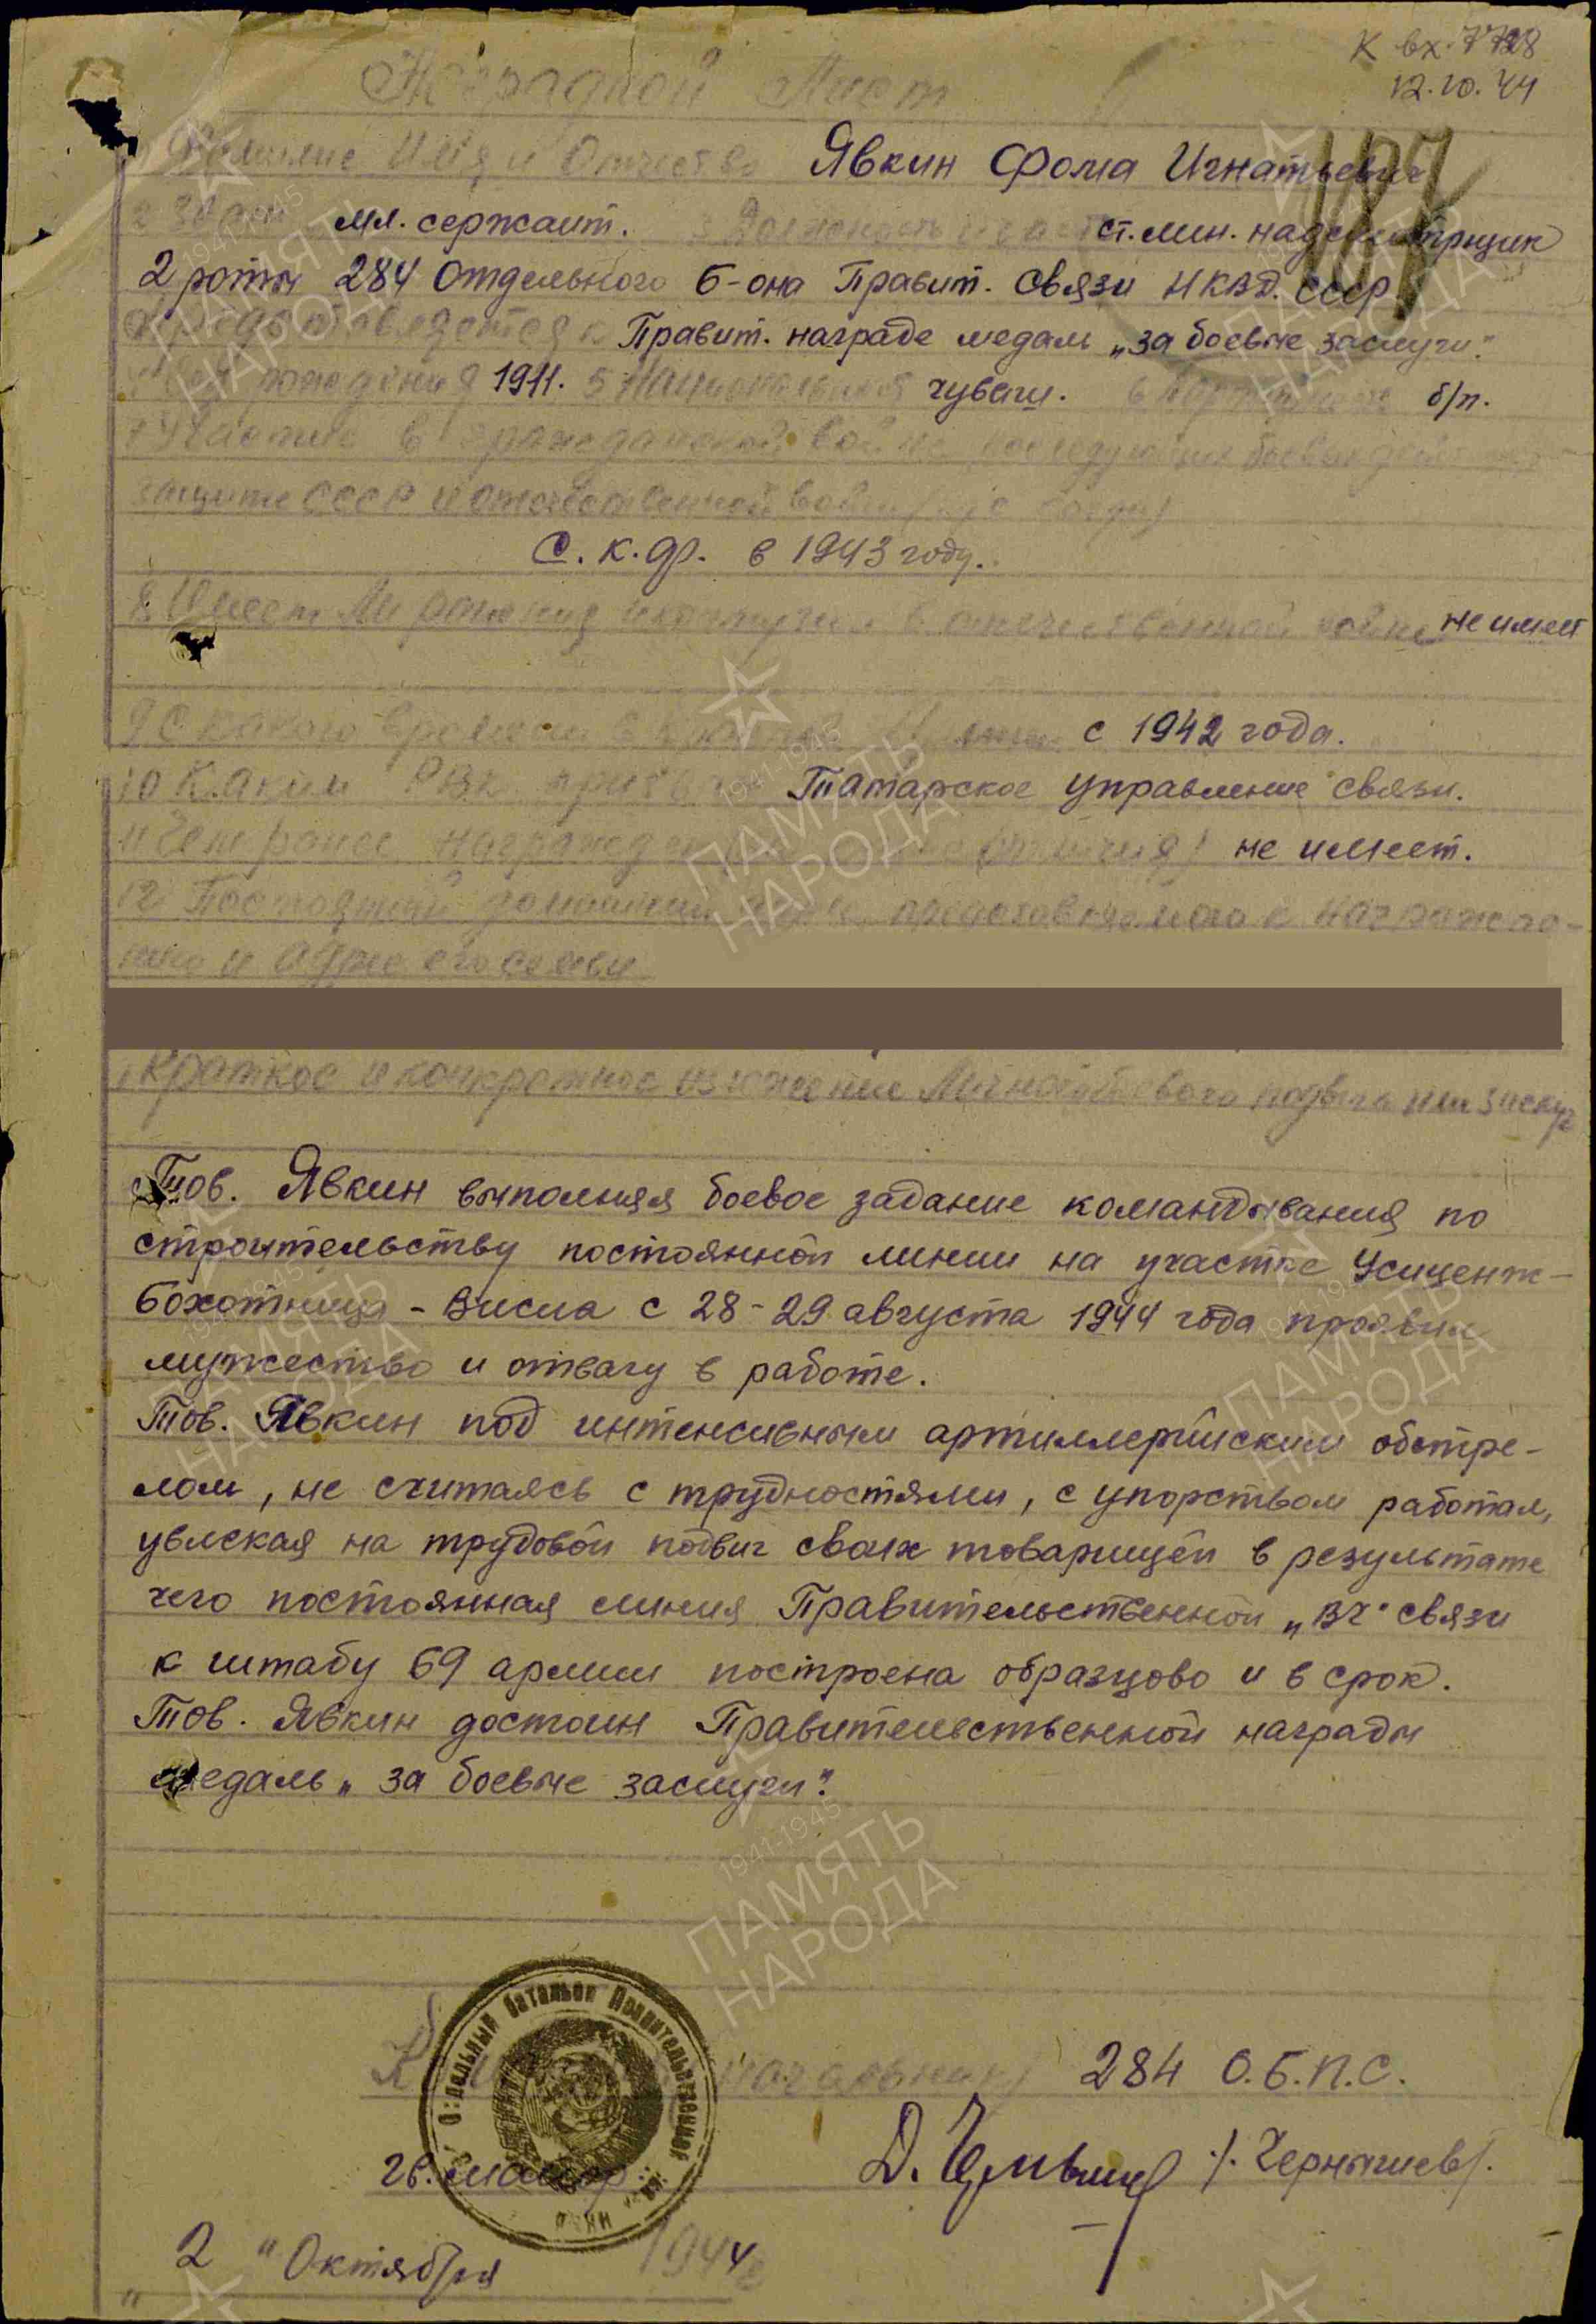 К вх. 7728
12.10.44
Наградной Лист
187
1 Фамилие Имя и Отчество Явкин Фома Игнатьевич
2 Звание мл. сержант. 3 Должность и часть ст. лин. надсмотрщик
2 роты 284 Отдельного б-она Правит. связи НКВД. СССР
Представляется к Правит. награде медаль „за боевые заслуги".
4 Год рождения 1911. 5 Национальность чуваш. 6 Партийность б/п.
7 Участие в гражданской войне последующих боевых действиях
защите СССР и отечественной войне (где когда)
С. к. ф. в 1943 году.
8 Имеет Ли ранения и контузии в отечественной войне не имеет
9 С какого времени в Красной Армии с 1942 года.
10 Каким РВК призван Татарское управление связи.
11 Чем ранее награжден (отличия) не имеет.
12 Постоянный домашний адрес представляемого к награждению
и адрес его семьи
Краткое и конкретное изложение Личного боевого подвига или заслуг
Тов. Явкин выполняя боевое задание командывания по
строительству постоянной линии на участке Усиценж-
Бохотница - Висла с 28-29 августа 1944 года проявил
мужество и отвагу в работе.
Тов. Явкин под интенсивным артиллерийским обстре-
лом, не считаясь с трудностями, с упорством работал,
увлекая на трудовой подвиг своих товарищей в результате
чего постоянная линия Правительственной „ВЧ" связи
к штабу 69 армии построена образцово и в срок.
Тов. Явкин достоин Правительственной награды
медаль „за боевые заслуги".
Отдельный батальон Правительственной
начальник) 284 О.Б.П.С.
гв. майор Д. Черныш /. Чернышев/.
„ 2 " Октября 1944 г
1941-1945
ПАМЯТЬ
НАРОДА